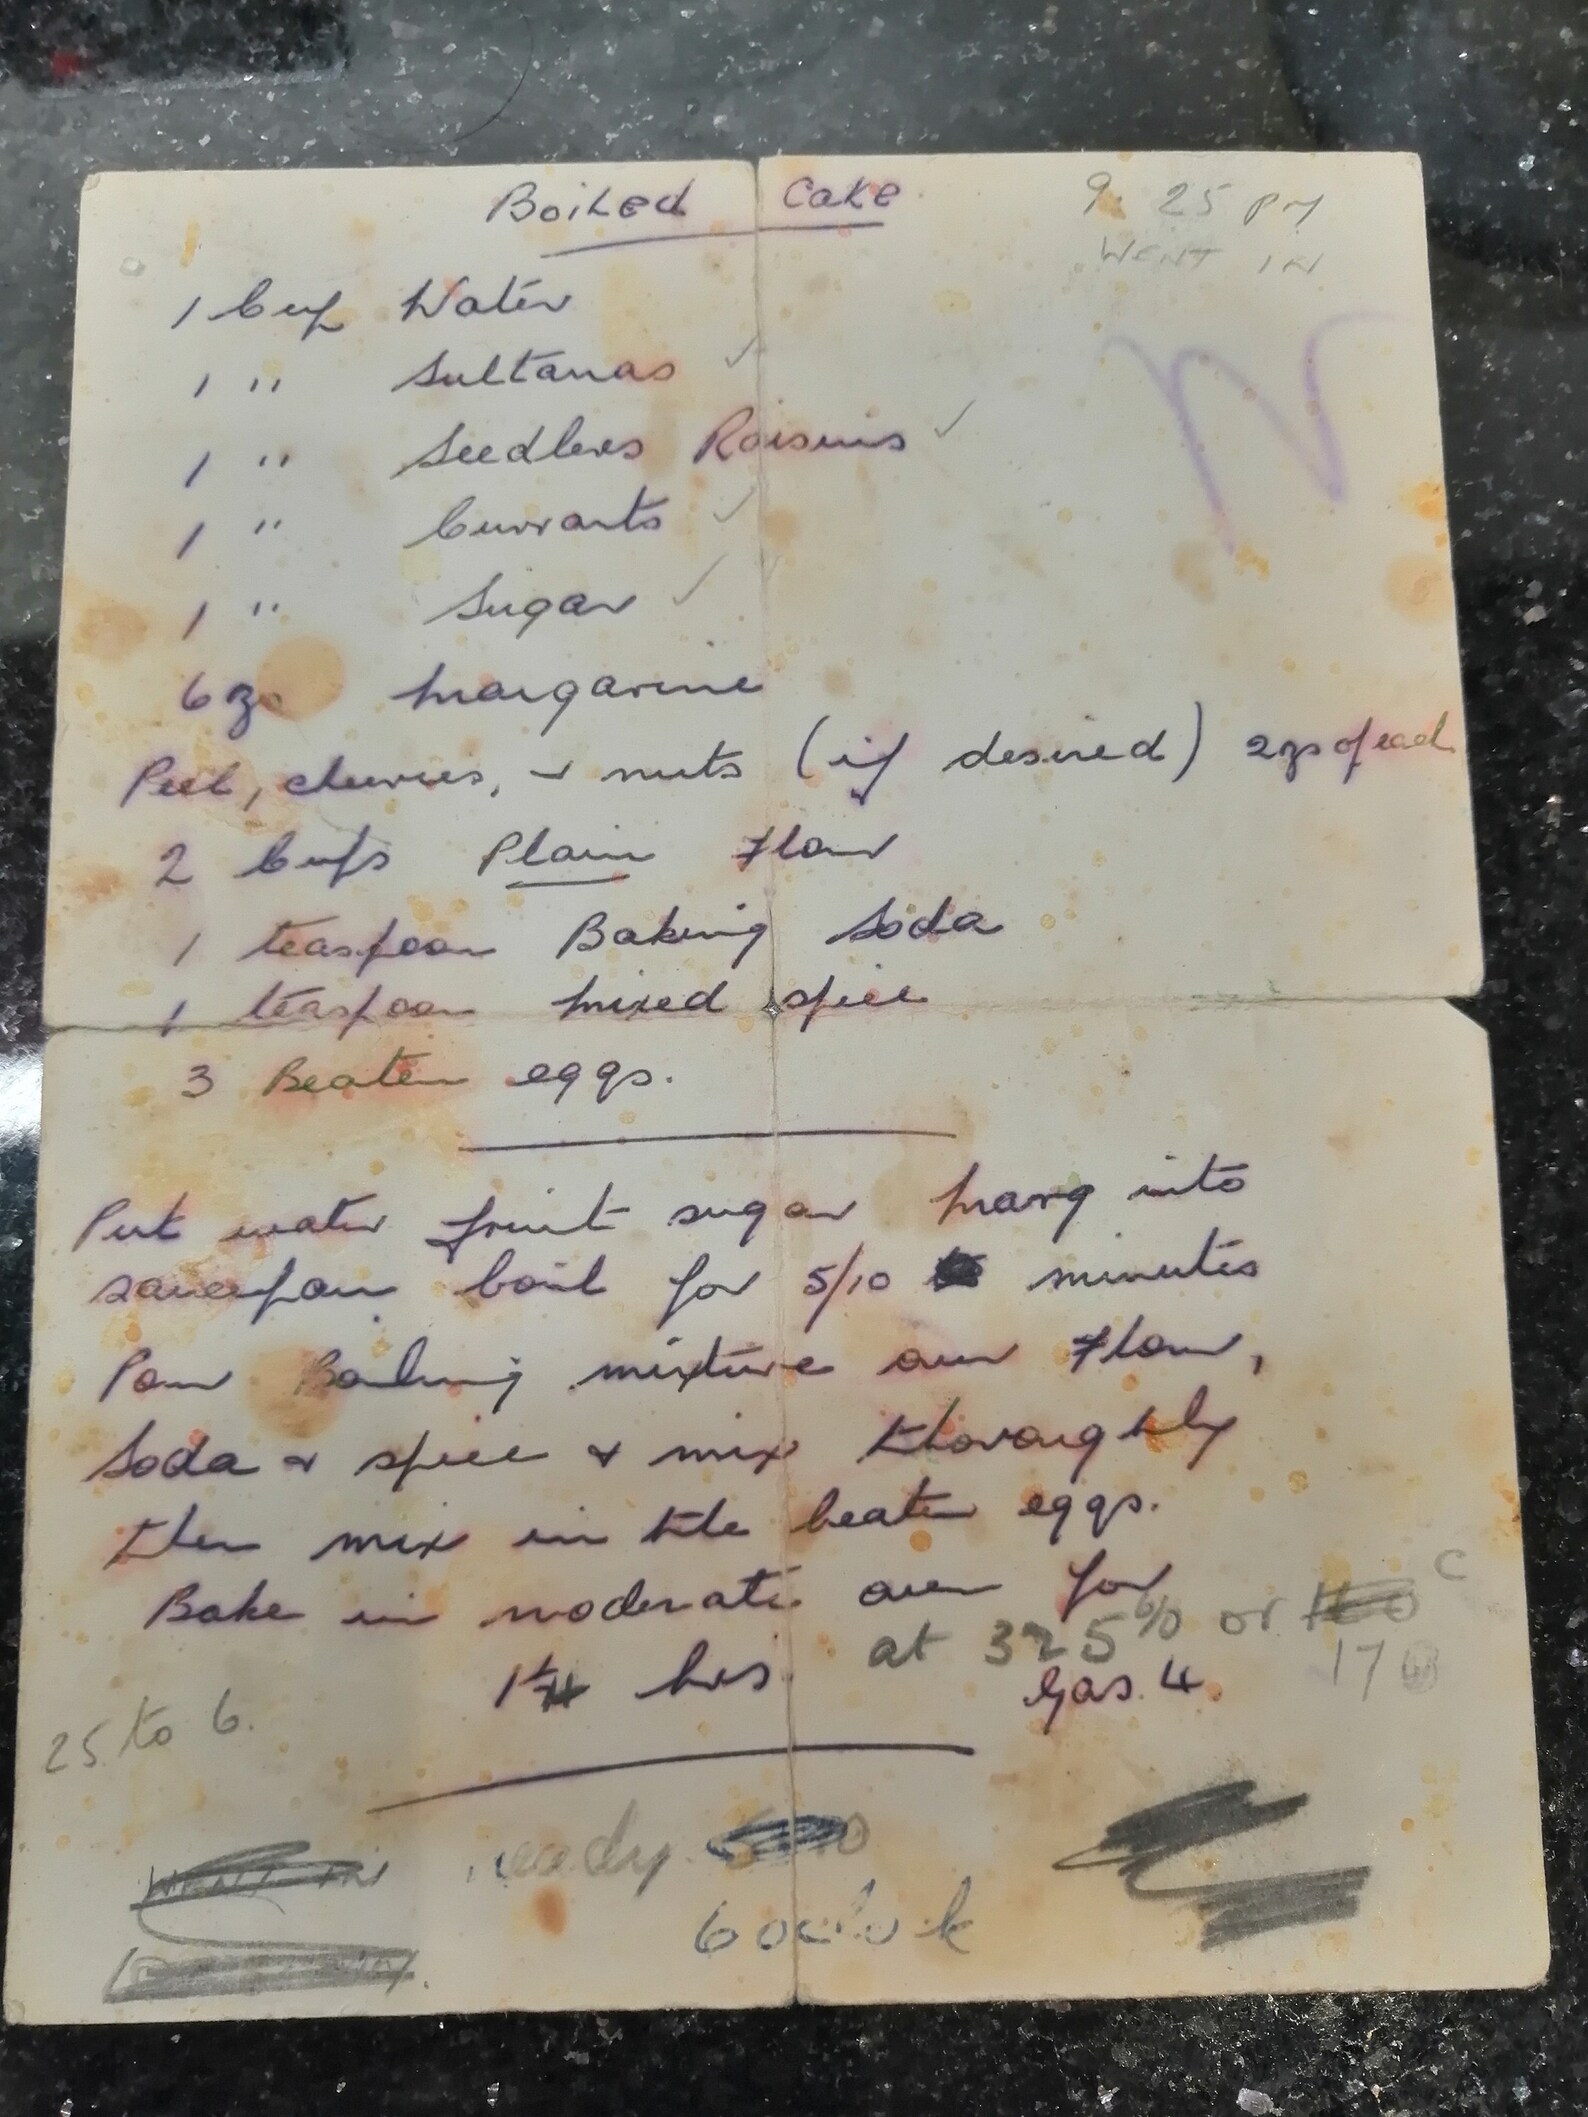 Boiled Cake
9. 25 PM
WENT IN
1 Cup Water
1 " Sultanas ✓
1 " Seedless Raisins ✓
1 " Currants ✓
1 " Sugar ✓
6 oz. Margarine
Peel, cherries, & nuts (if desired) 2 ozs of each
2 Cups Plain Flour
1 teaspoon Baking Soda
1 teaspoon mixed spice
3 Beaten eggs.
Put water fruit sugar marg into
saucepan boil for 5/10 minutes
Pour Boiling mixture over Flour,
Soda & spice & mix thoroughly
then mix in the beaten eggs.
Bake in moderate oven for
hrs. at 325 or C
Gas. 4.
25 to 6.
ready
6 oclock